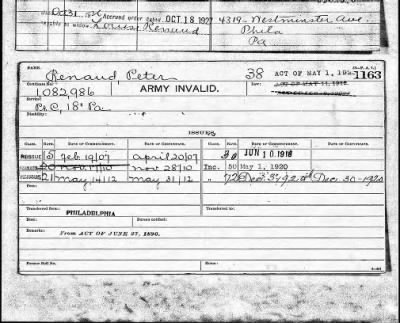 Oct 31, Accrued order dated OCT 18 1927 4319 - Westminster Ave.
to widow, Louise Renaud Phila
Pa.
NAME:
Renaud, Peter 38 ACT OF MAY 1, 1920 1163
Certificate No.: Law:
1082986 ARMY INVALID.
Pvt C, 18" Pa
Disability:
ISSUES.
CLASS. RATE. DATE OF COMMENCEMENT. DATE OF CERTIFICATE. CLASS. RATE. DATE OF COMMENCEMENT. DATE OF CERTIFICATE.
REISSUE 15 Feb 19/07 april 20/07 30 JUN 10 1918
20 nov 17/10 nov 28/10 Inc. 50 May 1, 1920
21 may 14/12 may 31/12 " 72 Dec. 3, 1920 Dec. 30-1920
Transferred from: Transferred to:
PHILADELPHIA
Died: Bureau notified:
Remarks:
From ACT OF JUNE 27, 1890.
Former Roll No. Home: